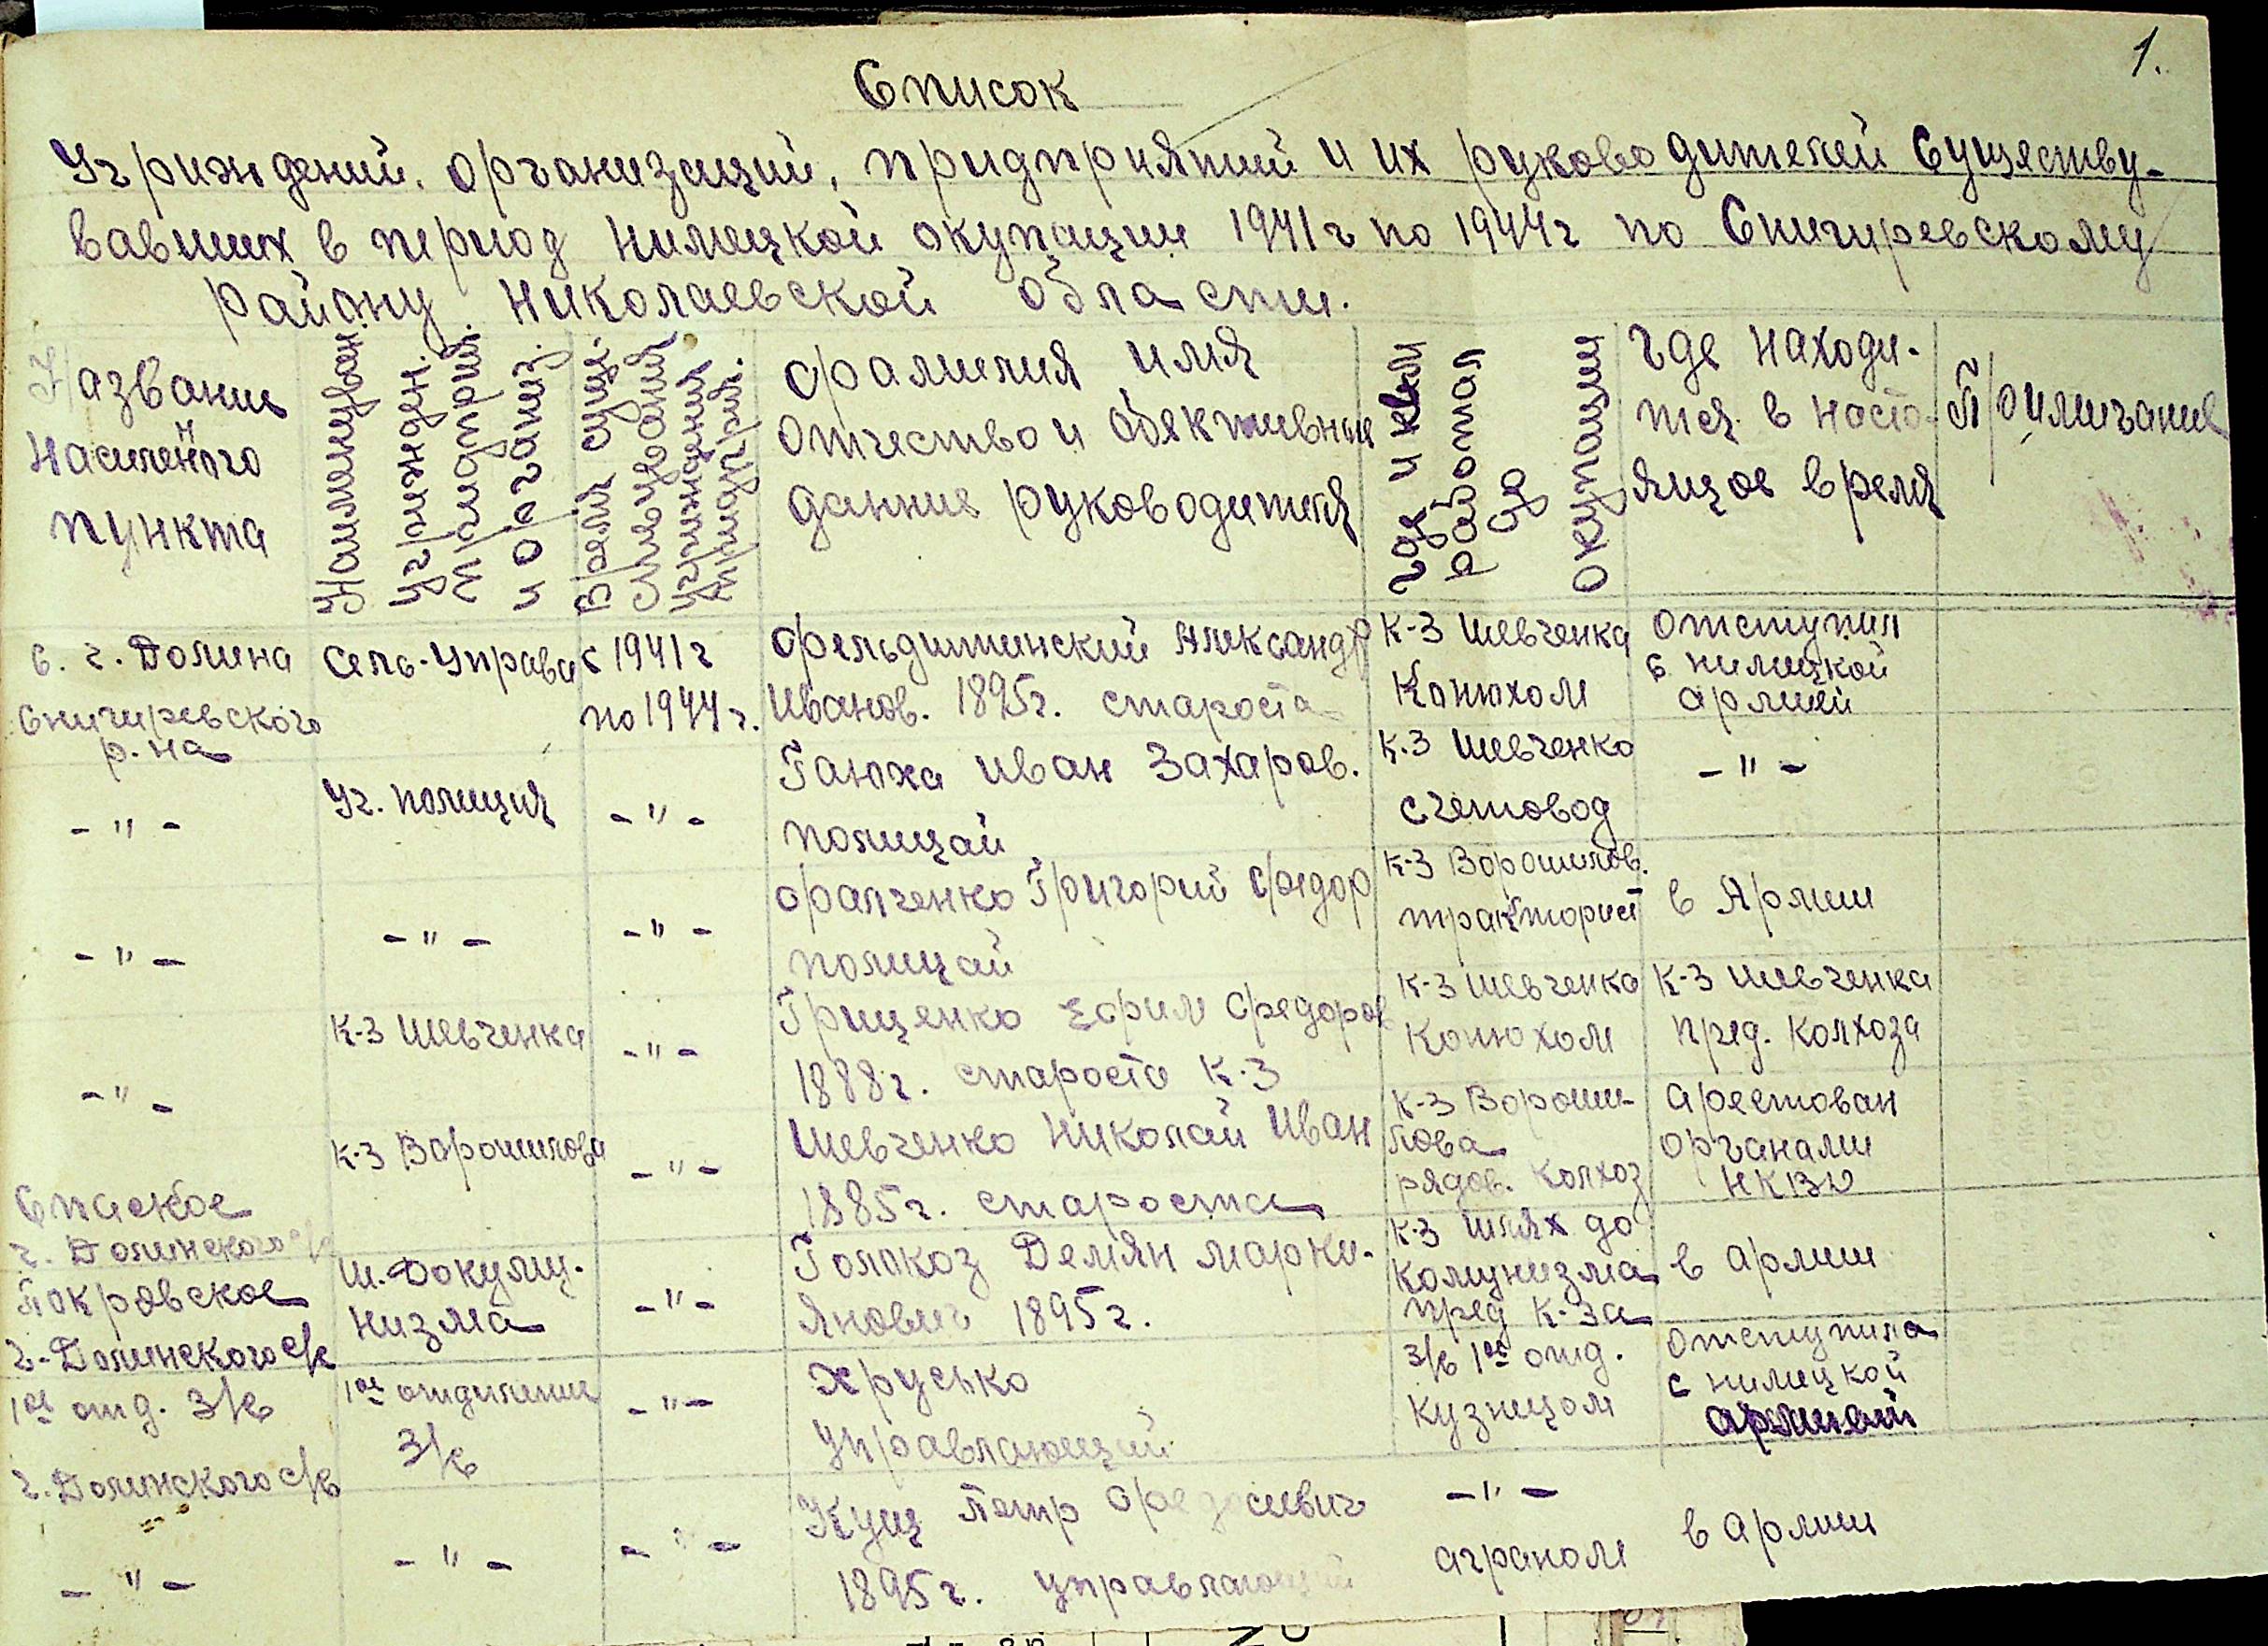 1.
Список
Учриждений. организаций, придприятий и их руководителей Существу-
вавших в период Нимецкой окупации 1941г по 1944г по Снигиревскому
району Николаевской области.
Название
Насиленного
пункта
Наименуван.
учрижден.
придприй.
и органiз.
Время сущ.
ствування
учриждения
придприй.
фамилия имя
Отчество и обективные
данние руководителя
где и кем
работал
до
окупации
где находи-
тся в насто-
ящое время
Примичание
с. г. Долина
Снигиревского
р.на
Сель-Управа
с 1941г
по 1944г.
Фельдишинский Александр
Иванов. 1895г. староста
К-з Шевченка
Конюхом
Отступил
с нимецкой
армией
- " -
Уч. полиция
- " -
Ганюха Иван Захаров.
полицай
К.з Шевченко
счетовод
- " -
- " -
- " -
- " -
Фалченко Григорий Федор
полицай
К-з Ворошилов.
тракторист
в Армии
- " -
К-з Шевченка
- " -
Грищенко Ефим Федоров
1888г. староста К.з
К-з Шевченко
Конюхом
К-з Шевченка
пред. Колхоза
К-з Ворошилова
- " -
Шевченко Николай Иван
1885г. староста
К-з Вороши-
лова
рядов. колхоз
Арестован
органами
НКВД
Спаское
г. Долинского с/с
Покровское
г-Долинского с/с
Ш. до кому-
низма
- " -
Голокоз Демян Марки-
янович 1895г.
К-з Шлях до
Комунизма
пред К-за
в армии
1ое отд. з/с
г. Долинского с/с
1ое отдиление
з/с
- " -
Хрусько
Управляющий
з/с 1ое отд.
Кузницом
Отступила
с нимецкой
армией
- " -
- " -
- " -
- " -
Кущ Петр Федосиевич
1895г. управляющий
- " -
аграном
в армии